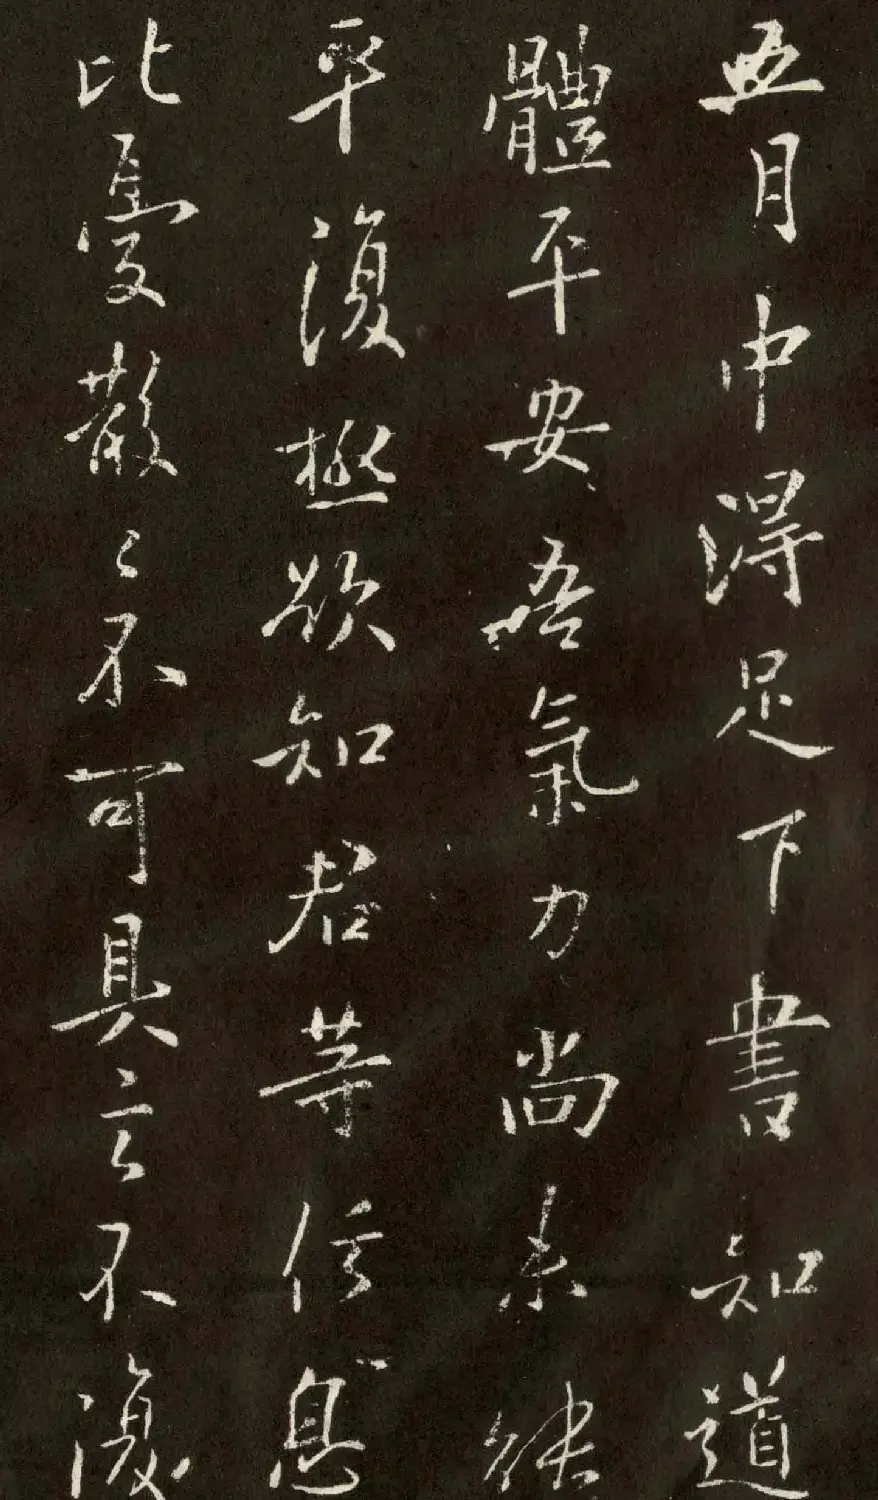 五月中得足下書知道
體平安吾氣力尚未能
平復極欲知君等信息
比憂散々不可具言不復